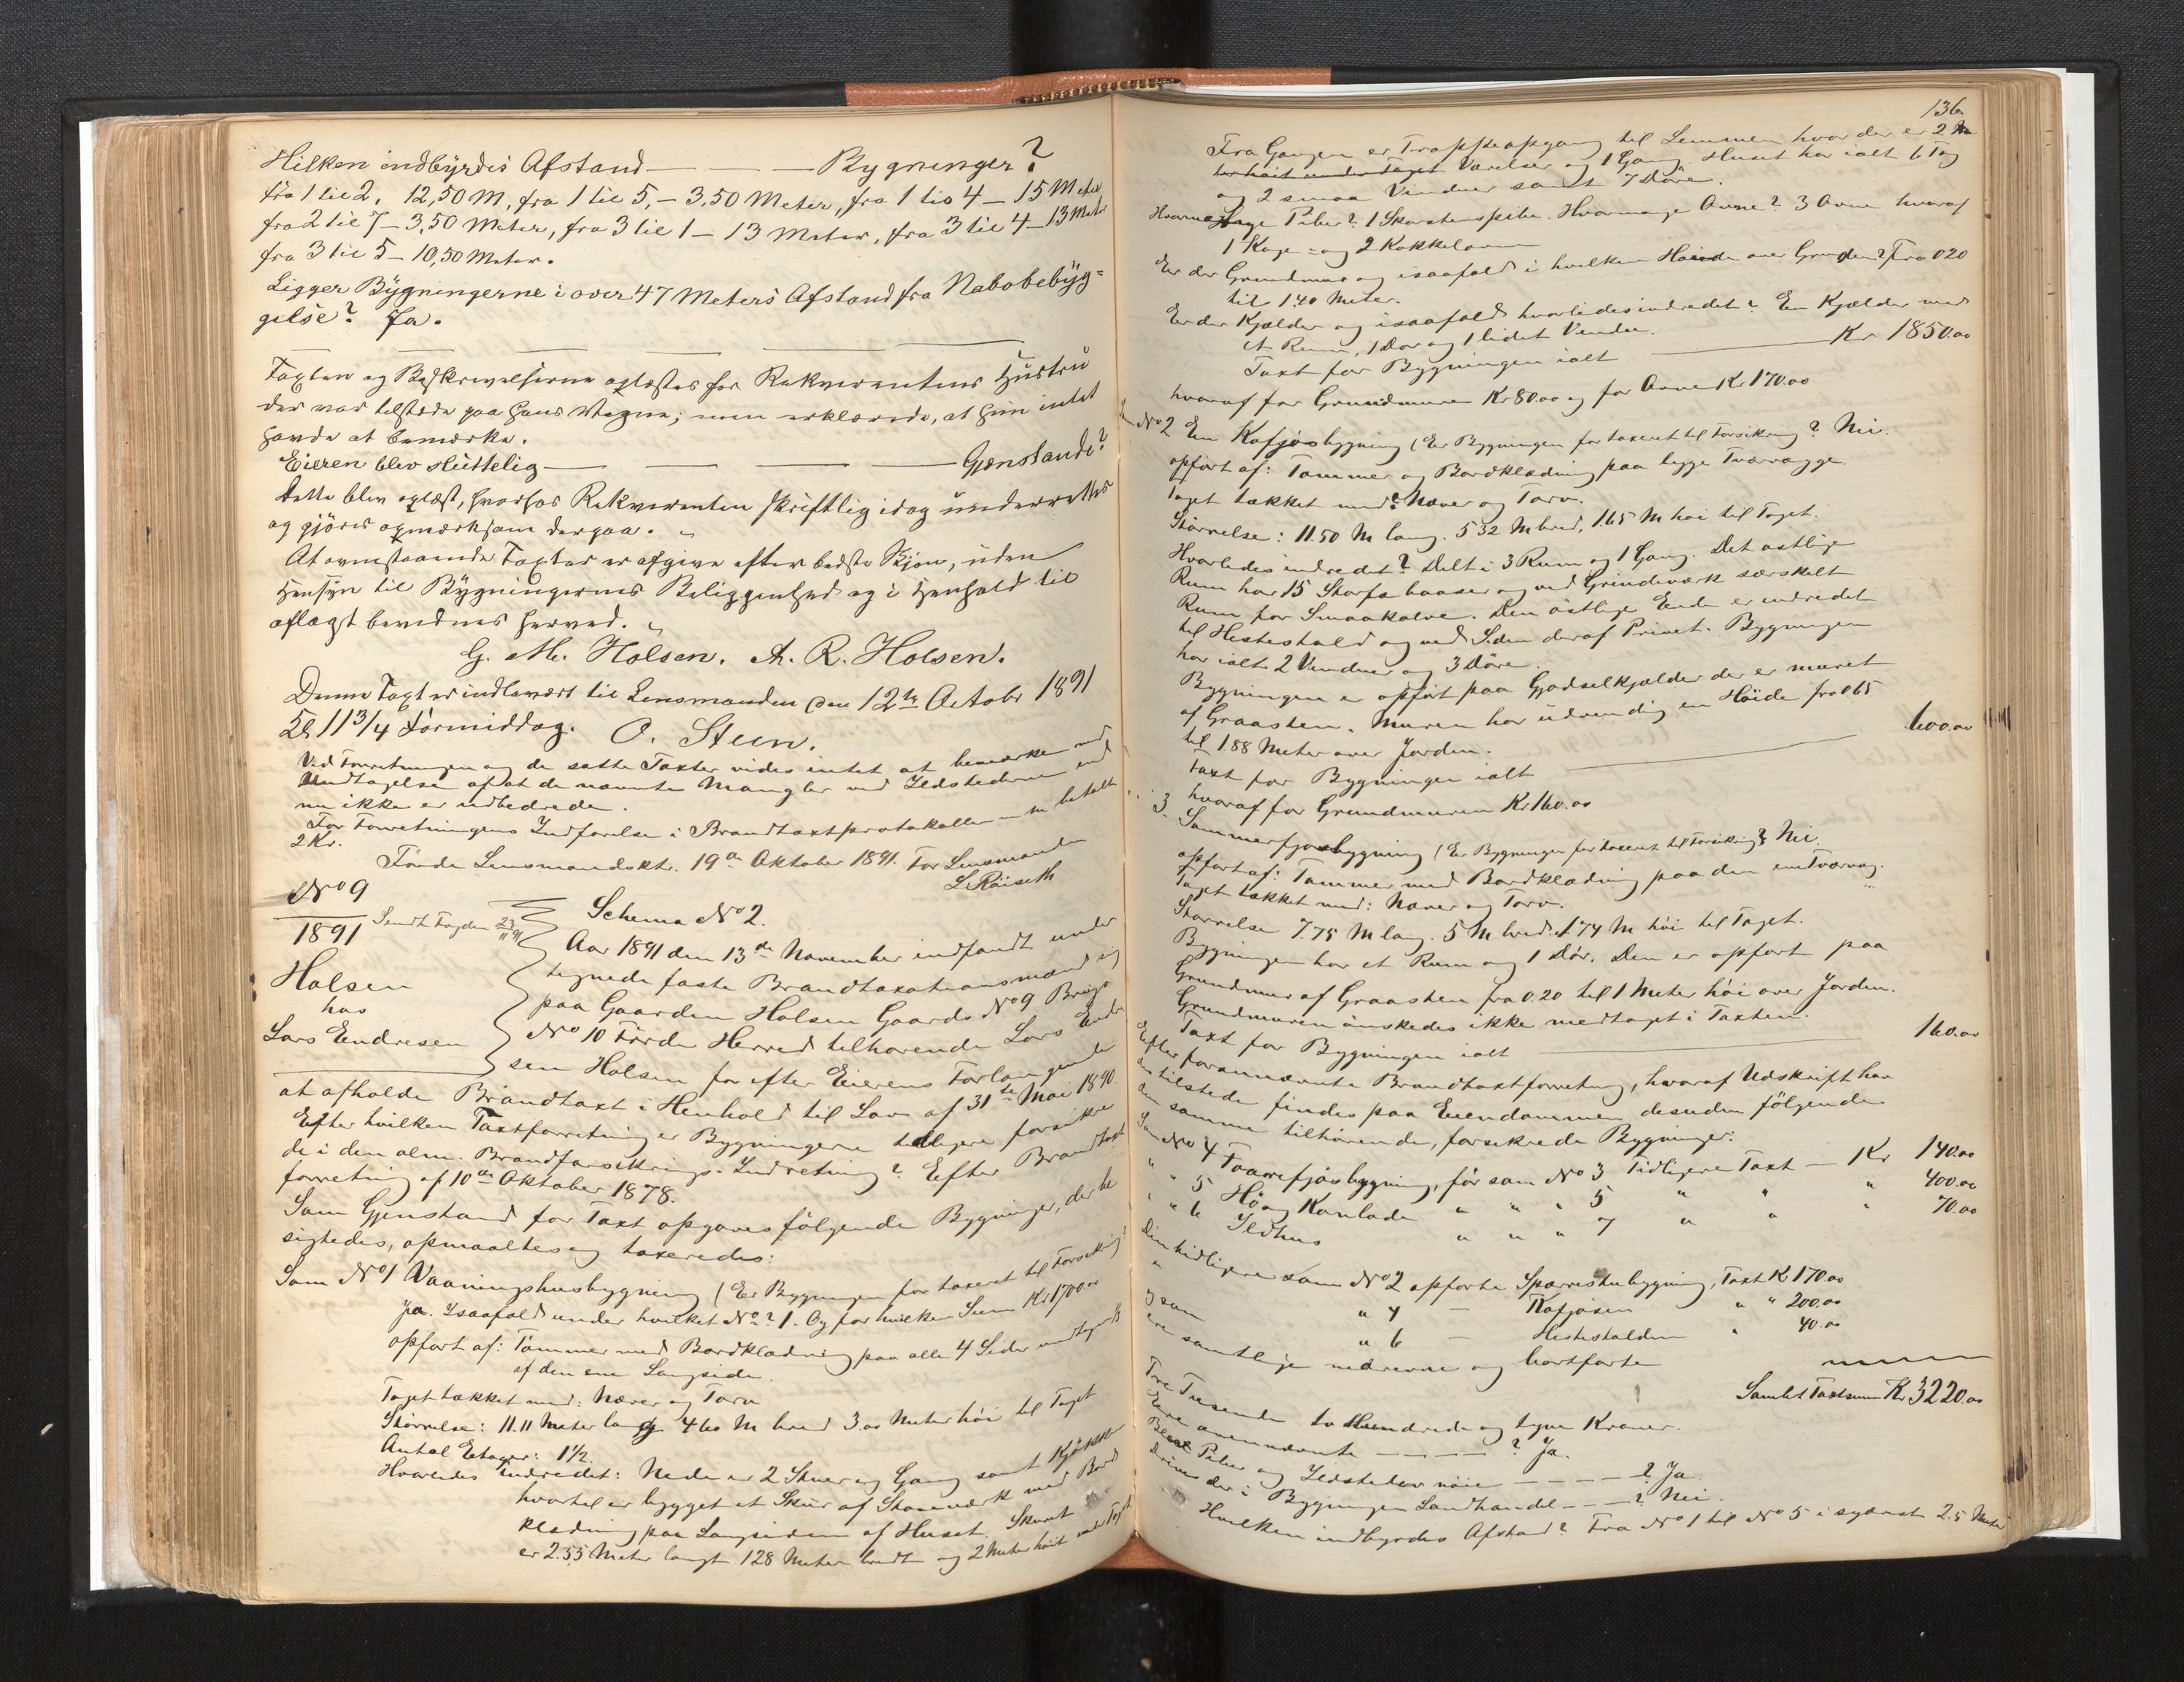 Hilken indbyrdes Afstand — — — Bygninger?
fra 1 til 2, 12,50 M, fra 1 til 5, – 3,50 Meter, fra 1 til 4 – 15 Meter
fra 2 til 7 – 3,50 Meter, fra 3 til 1 – 13 Meter, fra 3 til 4 – 13 Meter
fra 3 til 5 – 10,50 Meter.
Ligger Bygningerne i over 47 Meters Afstand fra Nabobebyg=
gelse? Ja.
Taxten og Beskrivelserne oplæstes for Rekvirentens Hustru
der var tilstede paa hans Vegne; men erklærede, at hun intet
havde at bemærke.
Eieren blev sluttelig — — — — Gjenstande?
Dette blev oplæst, hvorhos Rekvirenten skriftlig idag underrettes
og gjöres opmærksom derpaa.
At ovenstaaende Taxter er afgivne efter bedste Skjøn, uden
Hensyn til Bygningernes Beliggenhed og i Henhold til
aflagt bevidnes herved.
G. M. Holsen. A. R. Holsen.
Denne Taxt er indleveret til Lensmanden den 12te Octobr 1891
Kl 11 3/4 Formiddag. O. Steen.
Ved Forretningen og de satte Taxter vides intet at bemærke med
Undtagelse af at de nævnte Mangler ved Ildstederne end
nu ikke er udbedrede.
For Forretningens Indførelse i Brandtaxtprotokollen er betalt
2 Kr.
Förde Lensmandsktr. 19de Oktober 1891. For Lensmanden
L Röiseth
No 9
1891 Sendt Fogden 23/11 91
Schema No 2.
Holsen
hos
Lars Endresen
Aar 1891 den 13de November indfandt under
tegnede faste Brandtaxationsmænd sig
paa Gaarden Holsen Gaards No 9 Brugs
No 10 Förde Herred tilhørende Lars Endre
sen Holsen for efter Eierens Forlangende
at afholde Brandtaxt i Henhold til Lov af 31te Mai 1890.
Efter hvilken Taxtforretning er Bygningerne tidligere forsikre
de i den alm. Brandforsikrings-Indretning? Efter Brandtaxt
forretning af 10de Oktober 1878.
Som Gjenstand for Taxt opgaves følgende Bygninger, der be
sigtedes, opmaaltes og taxeredes:
Som No 1 Vaaningshusbygning (Er Bygningen før taxeret til Forsikring?
Ja. Isaafald under hvilket No? 1. Og for hvilken Sum Kr 1700.00
opført af: Tømmer med Bordklædning paa alle 4 Sider undtagen
af den ene Langside.
Taget tækket med: Næver og Torv
Størrelse: 11.11 Meter lang 4.60 M bred 3.00 Meter høi til Taget
Antal Etager: 1 1/2.
Hvorledes indredet: Nede er 2 Stuer og Gang samt Kjøkken
hvortil er bygget et Skur af Stavværk med Bord
klædning paa Langsiden af Huset. Skuret
er 2.55 Meter langt 1.28 Meter bredt og 2 Meter høit under Taget
136
Fra Gangen er Trappeopgang til Lemmen hvor der er 2
Værelser og 1 Gang. Huset har ialt 6 Fag
og 2 smaa Vinduer samt 7 Döre.
Hvormange Piber? 1 Skorstenspibe. Hvormange Ovne? 3 Ovne hvoraf
1 Koge= og 2 Kakkelovne
Er der Grundmur og isaafald i hvilken Høide over Grunden? Fra 0.20
til 1.40 Meter.
Er der Kjælder og isaafald hvorledes indredet? En Kjælder med
et Rum, 1 Dør og 1 lidet Vindu.
Taxt for Bygningen ialt — Kr 1850.00
hvoraf for Grundmuren Kr 80.00 og for Ovne Kr 170.00
No 2 En Kofjøsbygning (Er Bygningen før taxeret til Forsikring? Nei.
opført af: Tømmer og Bordklædning paa begge Tværvægge.
Taget tækket med? Næver og Torv.
Størrelse: 11.50 M lang. 5.32 M bred, 1.65 M høi til Taget.
Hvorledes indredet? Delt i 3 Rum og 1 Gang. Det østlige
Rum har 15 Storfæbaaser og ved Grindeværk særskilt
Rum for Smaakalve. Den østlige Ende er indredet
til Hestestald og ved Siden deraf Privet. Bygningen
har ialt 2 Vinduer og 3 Döre.
Bygningen er opført paa Gjødselkjælder der er muret
af Graasten. Muren har udvendig en Høide fra 0.65
til 1.88 Meter over Jorden.
Taxt for Bygningen ialt — 600.00
hvoraf for Grundmuren Kr 160.00
3. Sommerfjøsbygning (Er Bygningen før taxeret til Forsikring? Nei.
opført af: Tømmer med Bordklædning paa den ene Tværvæg.
Taget tækket med: Næver og Torv.
Størrelse 7.75 M lang. 5 M bred. 1.74 M høi til Taget.
Bygningen har et Rum og 1 Dör. Den er opført paa
Grundmur af Graasten fra 0.20 til 1 Meter høi over Jorden.
Grundmuren önskedes ikke medtaget i Taxten.
Taxt for Bygningen ialt — 160.00
Efter forannævnte Brandtaxtforretning, hvoraf Udskrift har
tilstede findes paa Eiendommen desuden følgende
den samme tilhørende, forsikrede Bygninger:
Som No 4 Faarefjøsbygning, før som No 3 Tidligere Taxt — Kr 140.00
" " 5 Hö og Kornlade " " " 5 " " " 400.00
" " 6 Ildhus " " " 7 " " " 70.00
Den tidligere som No 2 opførte Sperrestubygning, Taxt K 170.00
" " 4 — Kofjösen " " 200.00
og som " 6 — Hestestalden " 40.00
ere samtlige nedrevne og bortførte
Samlet Taxtsum Kr 3220.00
Tre Tusende to Hundrede og tyve Kroner.
Ere ovennævnte — — — — ? Ja.
Blev Piber og Ildsteder nöie — — — — ? Ja.
Drives der i Bygningen Landhandel — — — ? Nei.
Hvilken indbyrdes Afstand? Fra No 1 til No 5 i sydvest 2.5 Meter